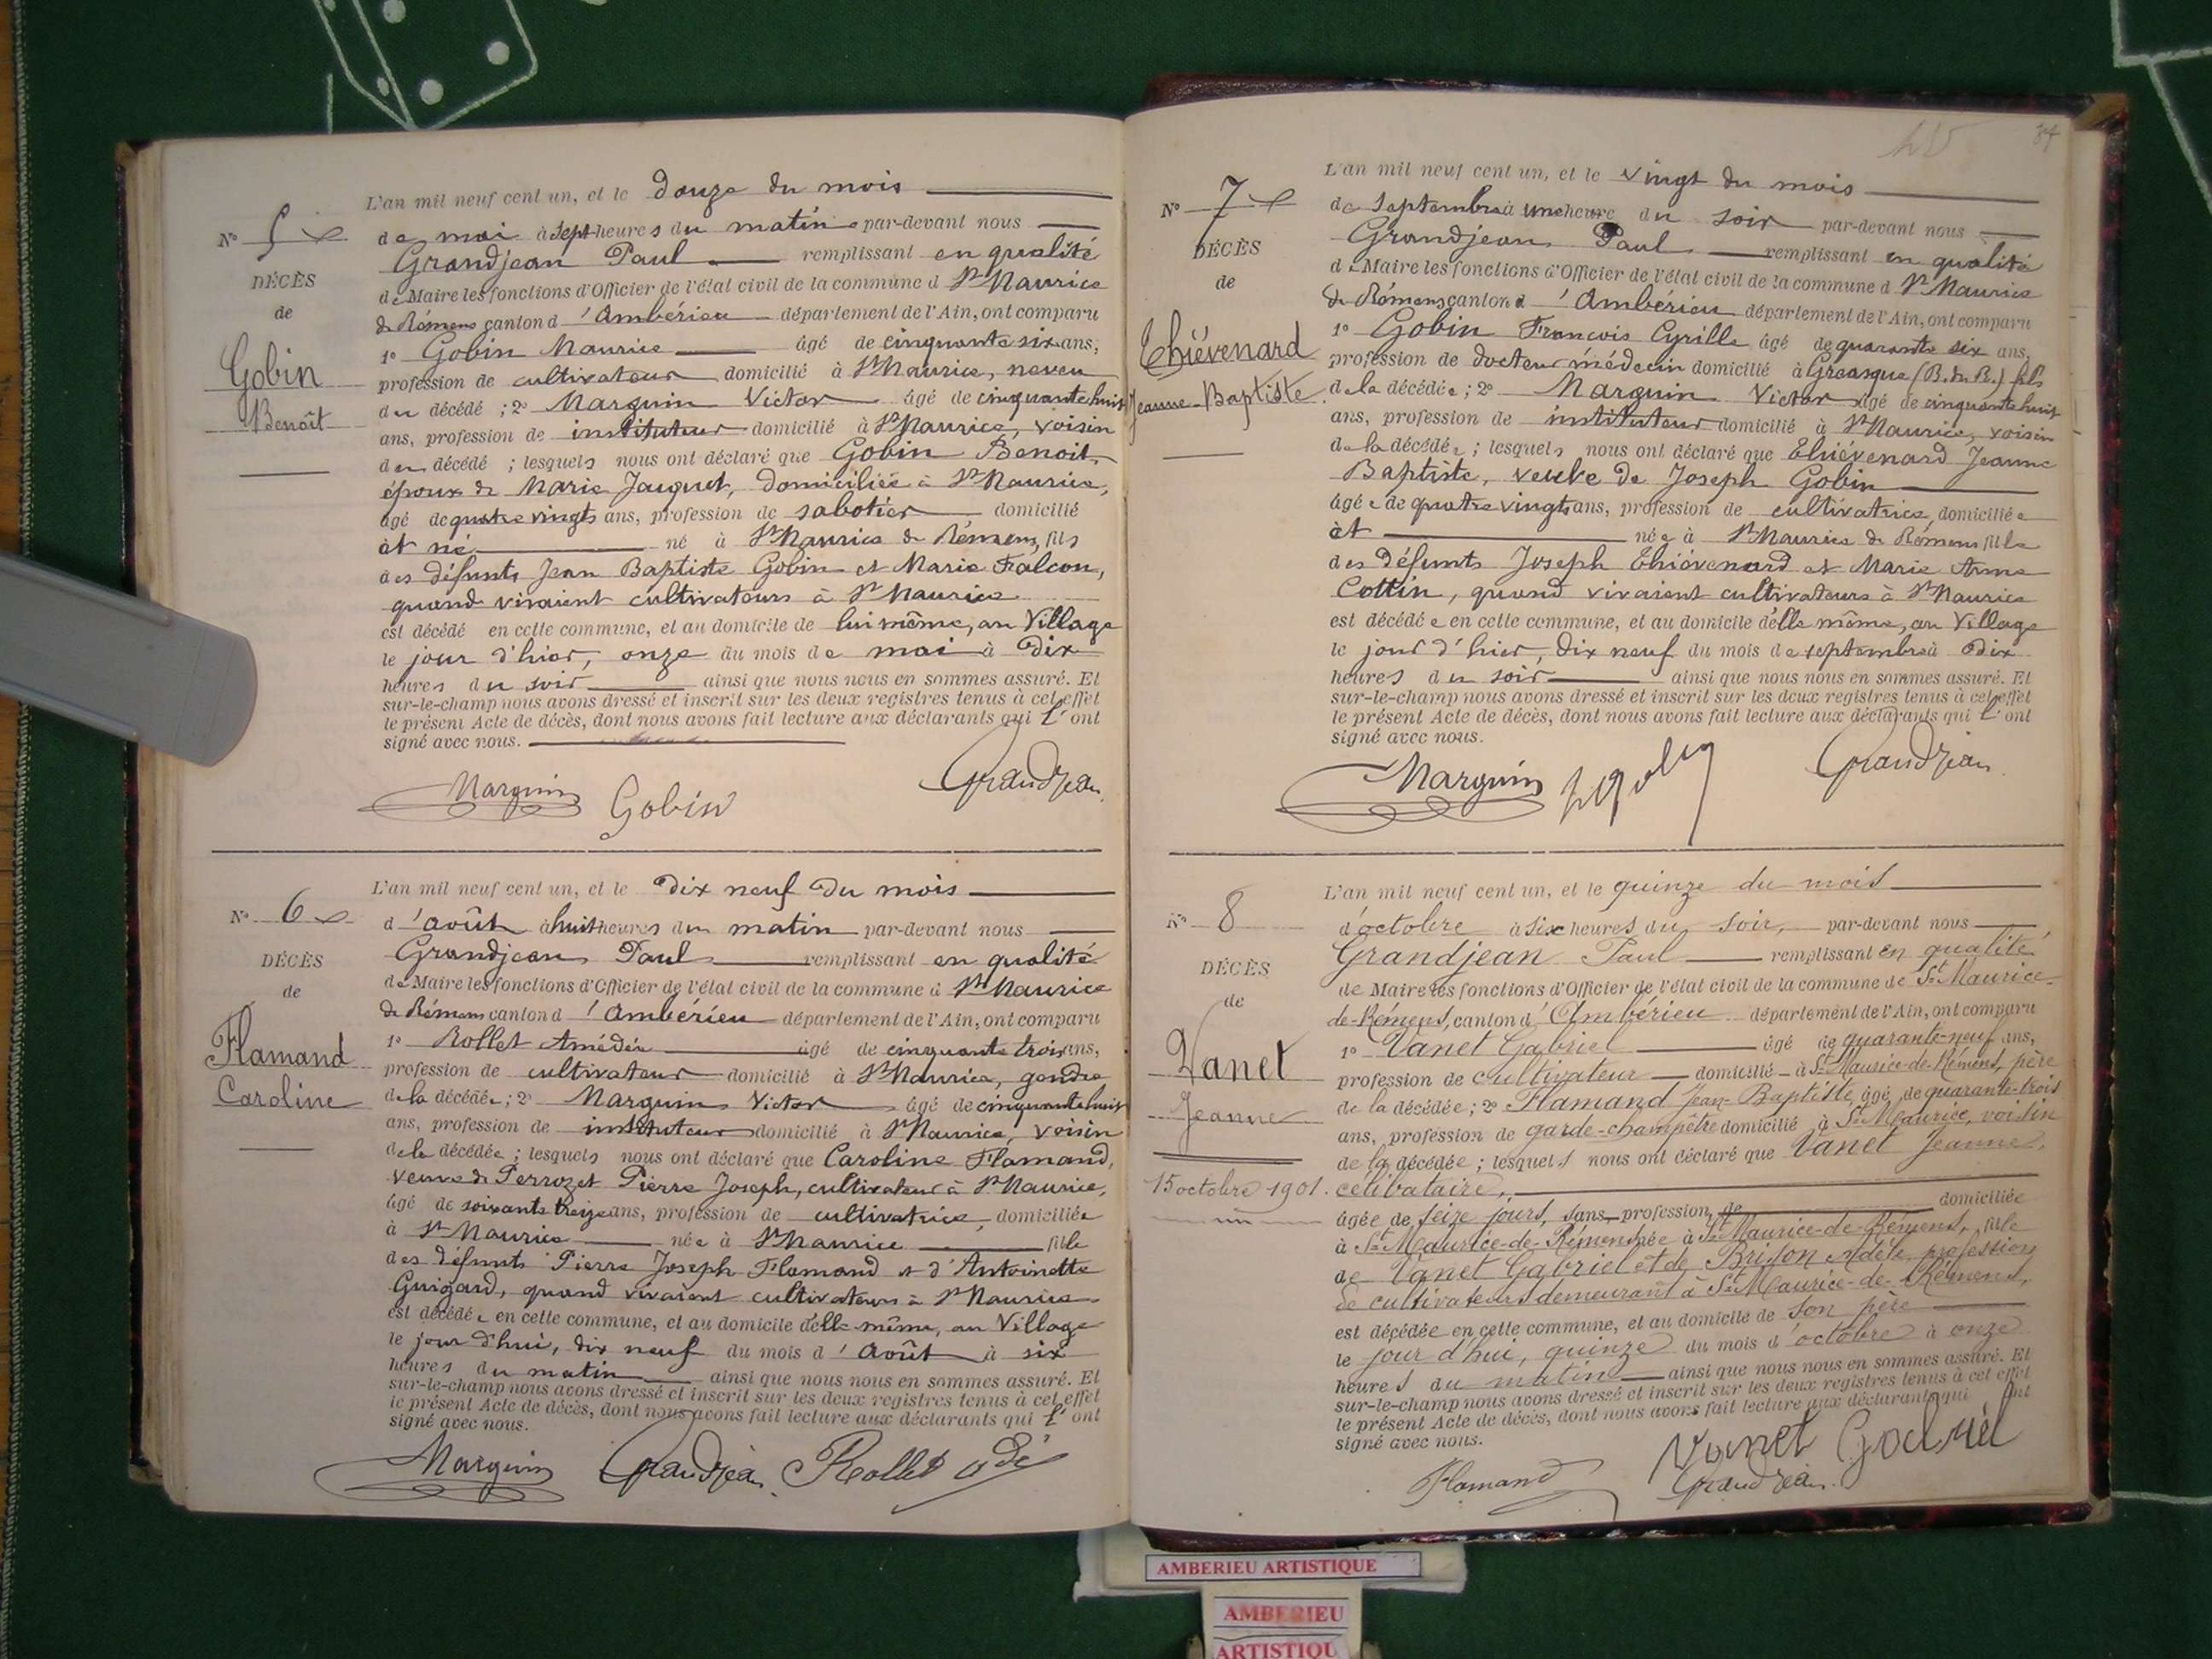 L'an mil neuf cent un, et le douze du mois
N° 5
de mai à sept heures du matin par-devant nous
Grandjean Paul remplissant en qualité
DÉCÈS
de Maire les fonctions d'Officier de l'état civil de la commune d St Maurice
de
de Rémens canton d'Ambérieu département de l'Ain, ont comparu
1° Gobin Maurice âgé de cinquante six ans,
Gobin
profession de cultivateur domicilié à St Maurice, neveu
Benoît
du décédé ; 2° Marguin Victor âgé de cinquante huit
ans, profession de instituteur domicilié à St Maurice, voisin
du décédé ; lesquels nous ont déclaré que Gobin Benoit,
époux de Marie Jauquet, domiciliée à St Maurice,
âgé de quatre vingts ans, profession de sabotier domicilié
et né né à St Maurice de Rémens, fils
des défunts Jean Baptiste Gobin et Marie Falcon,
quand vivaient cultivateurs à St Maurice
est décédé en cette commune, et au domicile de lui même, au Village
le jour d'hier, onze du mois de mai à dix
heures du soir ainsi que nous nous en sommes assuré. Et
sur-le-champ nous avons dressé et inscrit sur les deux registres tenus à cet effet
le présent Acte de décès, dont nous avons fait lecture aux déclarants qui l'ont
signé avec nous.
Marguin Gobin Grandjean
L'an mil neuf cent un, et le dix neuf du mois
N° 6
d'août à huit heures du matin par-devant nous
Grandjean Paul remplissant en qualité
DÉCÈS
de Maire les fonctions d'Officier de l'état civil de la commune d St Maurice
de
de Rémens canton d'Ambérieu département de l'Ain, ont comparu
1° Rollet Amédée âgé de cinquante trois ans,
Flamand
profession de cultivateur domicilié à St Maurice, gendre
Caroline
de la décédée ; 2° Marguin Victor âgé de cinquante huit
ans, profession de instituteur domicilié à St Maurice, voisin
de la décédée ; lesquels nous ont déclaré que Caroline Flamand,
veuve de Perrozet Pierre Joseph, cultivateur à St Maurice,
âgé de soixante treize ans, profession de cultivatrice, domiciliée
à St Maurice née à St Maurice fille
des défunts Pierre Joseph Flamand et d'Antoinette
Guigard, quand vivaient cultivateurs à St Maurice
est décédée en cette commune, et au domicile d'elle même, au Village
le jour d'hui, dix neuf du mois d'Août à six
heures du matin ainsi que nous nous en sommes assuré. Et
sur-le-champ nous avons dressé et inscrit sur les deux registres tenus à cet effet
le présent Acte de décès, dont nous avons fait lecture aux déclarants qui l'ont
signé avec nous.
Marguin Grandjean Rollet
84
L'an mil neuf cent un, et le vingt du mois
N° 7
de septembre à une heure du soir par-devant nous
Grandjean Paul remplissant en qualité
DÉCÈS
de Maire les fonctions d'Officier de l'état civil de la commune d St Maurice
de
de Rémens canton d'Ambérieu département de l'Ain, ont comparu
1° Gobin Francois Cyrille âgé de quarante six ans,
Thiévenard
profession de docteur médecin domicilié à Greasque (B. du R.) fils
Jeanne-Baptiste
de la décédée ; 2° Marguin Victor âgé de cinquante huit
ans, profession de instituteur domicilié à St Maurice, voisin
de la décédée ; lesquels nous ont déclaré que Thiévenard Jeanne
Baptiste, veuve de Joseph Gobin
âgée de quatre vingts ans, profession de cultivatrice, domiciliée
et née à St Maurice de Rémens fille
des défunts Joseph Thiévenard et Marie Anne
Cottin, quand vivaient cultivateurs à St Maurice
est décédée en cette commune, et au domicile d'elle même, au Village
le jour d'hier, dix neuf du mois de septembre à dix
heures du soir ainsi que nous nous en sommes assuré. Et
sur-le-champ nous avons dressé et inscrit sur les deux registres tenus à cet effet
le présent Acte de décès, dont nous avons fait lecture aux déclarants qui l'ont
signé avec nous.
Marguin Grandjean
L'an mil neuf cent un, et le quinze du mois
N° 8
d'octobre à six heures du soir, par-devant nous
Grandjean Paul remplissant en qualité
DÉCÈS
de Maire les fonctions d'Officier de l'état civil de la commune de St Maurice-
de
de-Rémens, canton d'Ambérieu département de l'Ain, ont comparu
1° Vanet Gabriel âgé de quarante-neuf ans,
Vanet
profession de cultivateur domicilié à St Maurice-de-Rémens, père
Jeanne
de la décédée ; 2° Flamand Jean-Baptiste, âgé de quarante-trois
ans, profession de garde-champêtre domicilié à St Maurice, voisin
de la décédée ; lesquels nous ont déclaré que Vanet Jeanne,
15 octobre 1901. célibataire,
âgée de seize jours, sans profession, de domiciliée
à St Maurice-de-Rémens née à St Maurice-de-Rémens, fille
de Vanet Gabriel et de Brison Adèle, profession
de cultivateurs demeurant à St Maurice-de-Rémens,
est décédée en cette commune, et au domicile de son père
le jour d'hui, quinze du mois d'octobre à onze
heures du matin ainsi que nous nous en sommes assuré. Et
sur-le-champ nous avons dressé et inscrit sur les deux registres tenus à cet effet
le présent Acte de décès, dont nous avons fait lecture aux déclarants qui ont
signé avec nous.
Flamand Vanet Gabriel
Grandjean
AMBERIEU ARTISTIQUE
AMBERIEU
ARTISTIQU